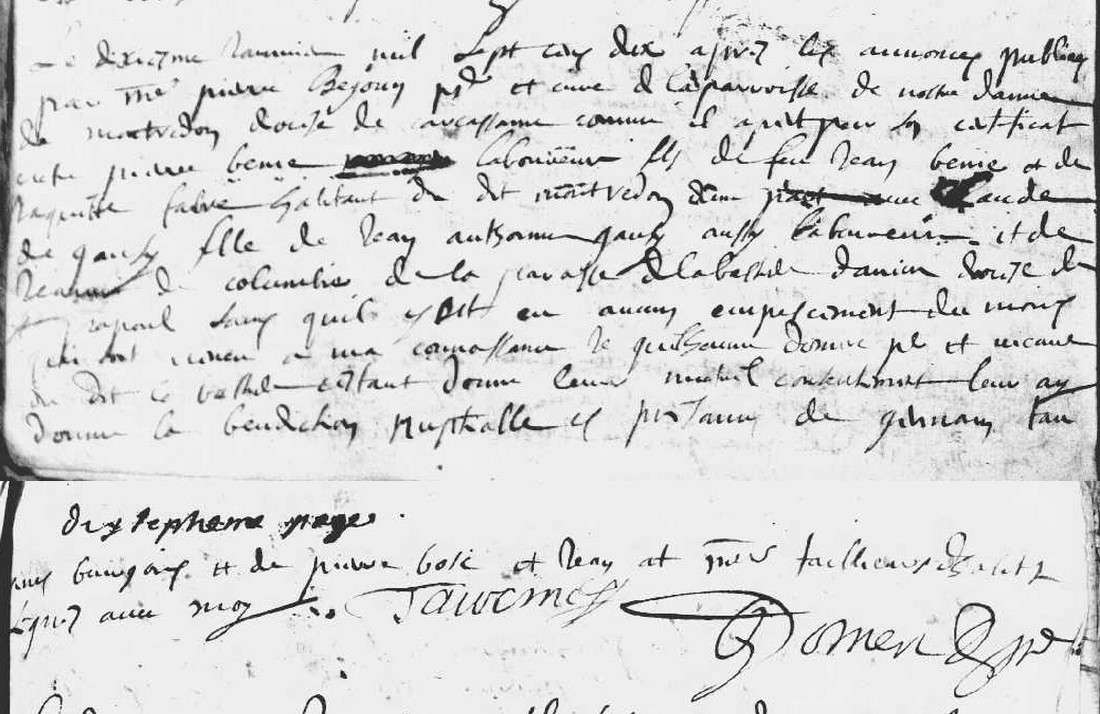 Le dixieme Januier mil sept cens dix apres les annonces publiees
par me pierre Bejouy ptre et cure de la parroisse de nostre dame
de montredon diocese de carcassonne comme il apert par son certificat
entre pierre benie laboureur fils de feu Jean benie et de
Jaquette fabre habitant du dit montredon dune part auec Claude
de gausy fille de Jean anthoine gausy aussy laboureur et de
Jeanne de columbie de la parroisse de labastide danion diocese de
St papoul sans quil y est eu aucun empeschement du moins
qui soit ueneu a ma connoissance Je guilhaume domerc ptre et uicaire
du dit la bastide estant donne leur mutuel consentement leur ay
donne la benediction nuptialle es presances de
dixseptieme page
bourgois et de pierre bosc et Jean at mes tailleurs habitts
signes auec moy Tauernes
Domerc ptre